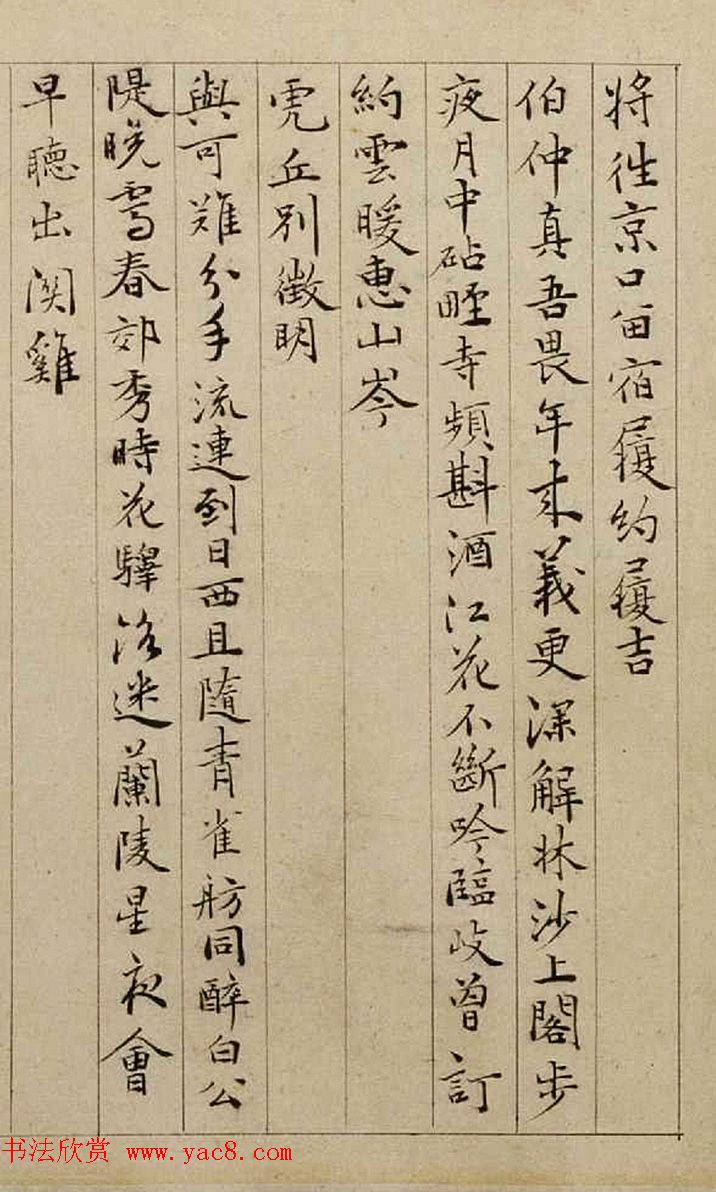 将徃京口留宿履約履吉
伯仲真吾畏年来義更深解牀沙上閣步
夜月中砧畦寺頻斟酒江花不斷吟臨岐曾訂
約雲暖惠山岑
虎丘別徵明
與可難分手流連到日西且隨青雀舫同醉白公
隄晚春郊秀時花驛路迷蘭陵星夜會
早聽出関雞
书法欣赏 www.yac8.com